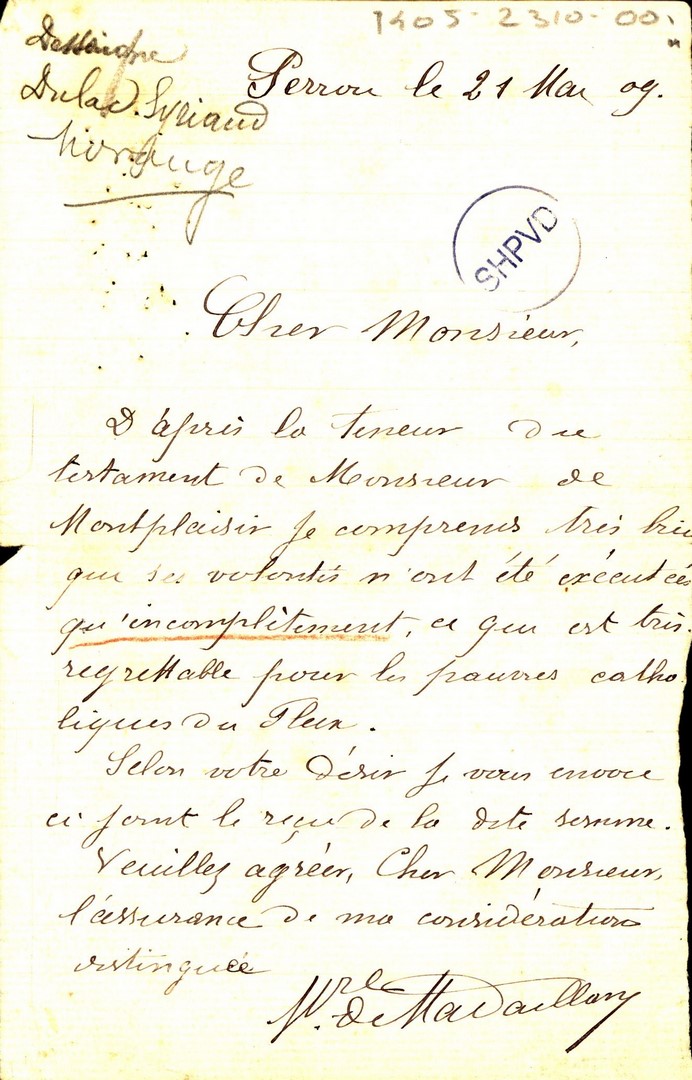 1405-2310-00.
Dessaigne
Dulac. Syriaud
Perrou le 21 Mai 09.
SHPVD
Cher Monsieur,
D'après la teneur du
testament de Monsieur de
Montplaisir je comprens très bien
que ses volontés n'ont été exécutées
qu'incomplètement, ce qui est très
regrettable pour les pauvres catho
liques du Fleix.
Selon votre désir je vous envoie
ci joint le reçu de la dite somme.
Veuillez agréer, Cher Monsieur,
l'assurance de ma considération
distinguée
de Madaillan